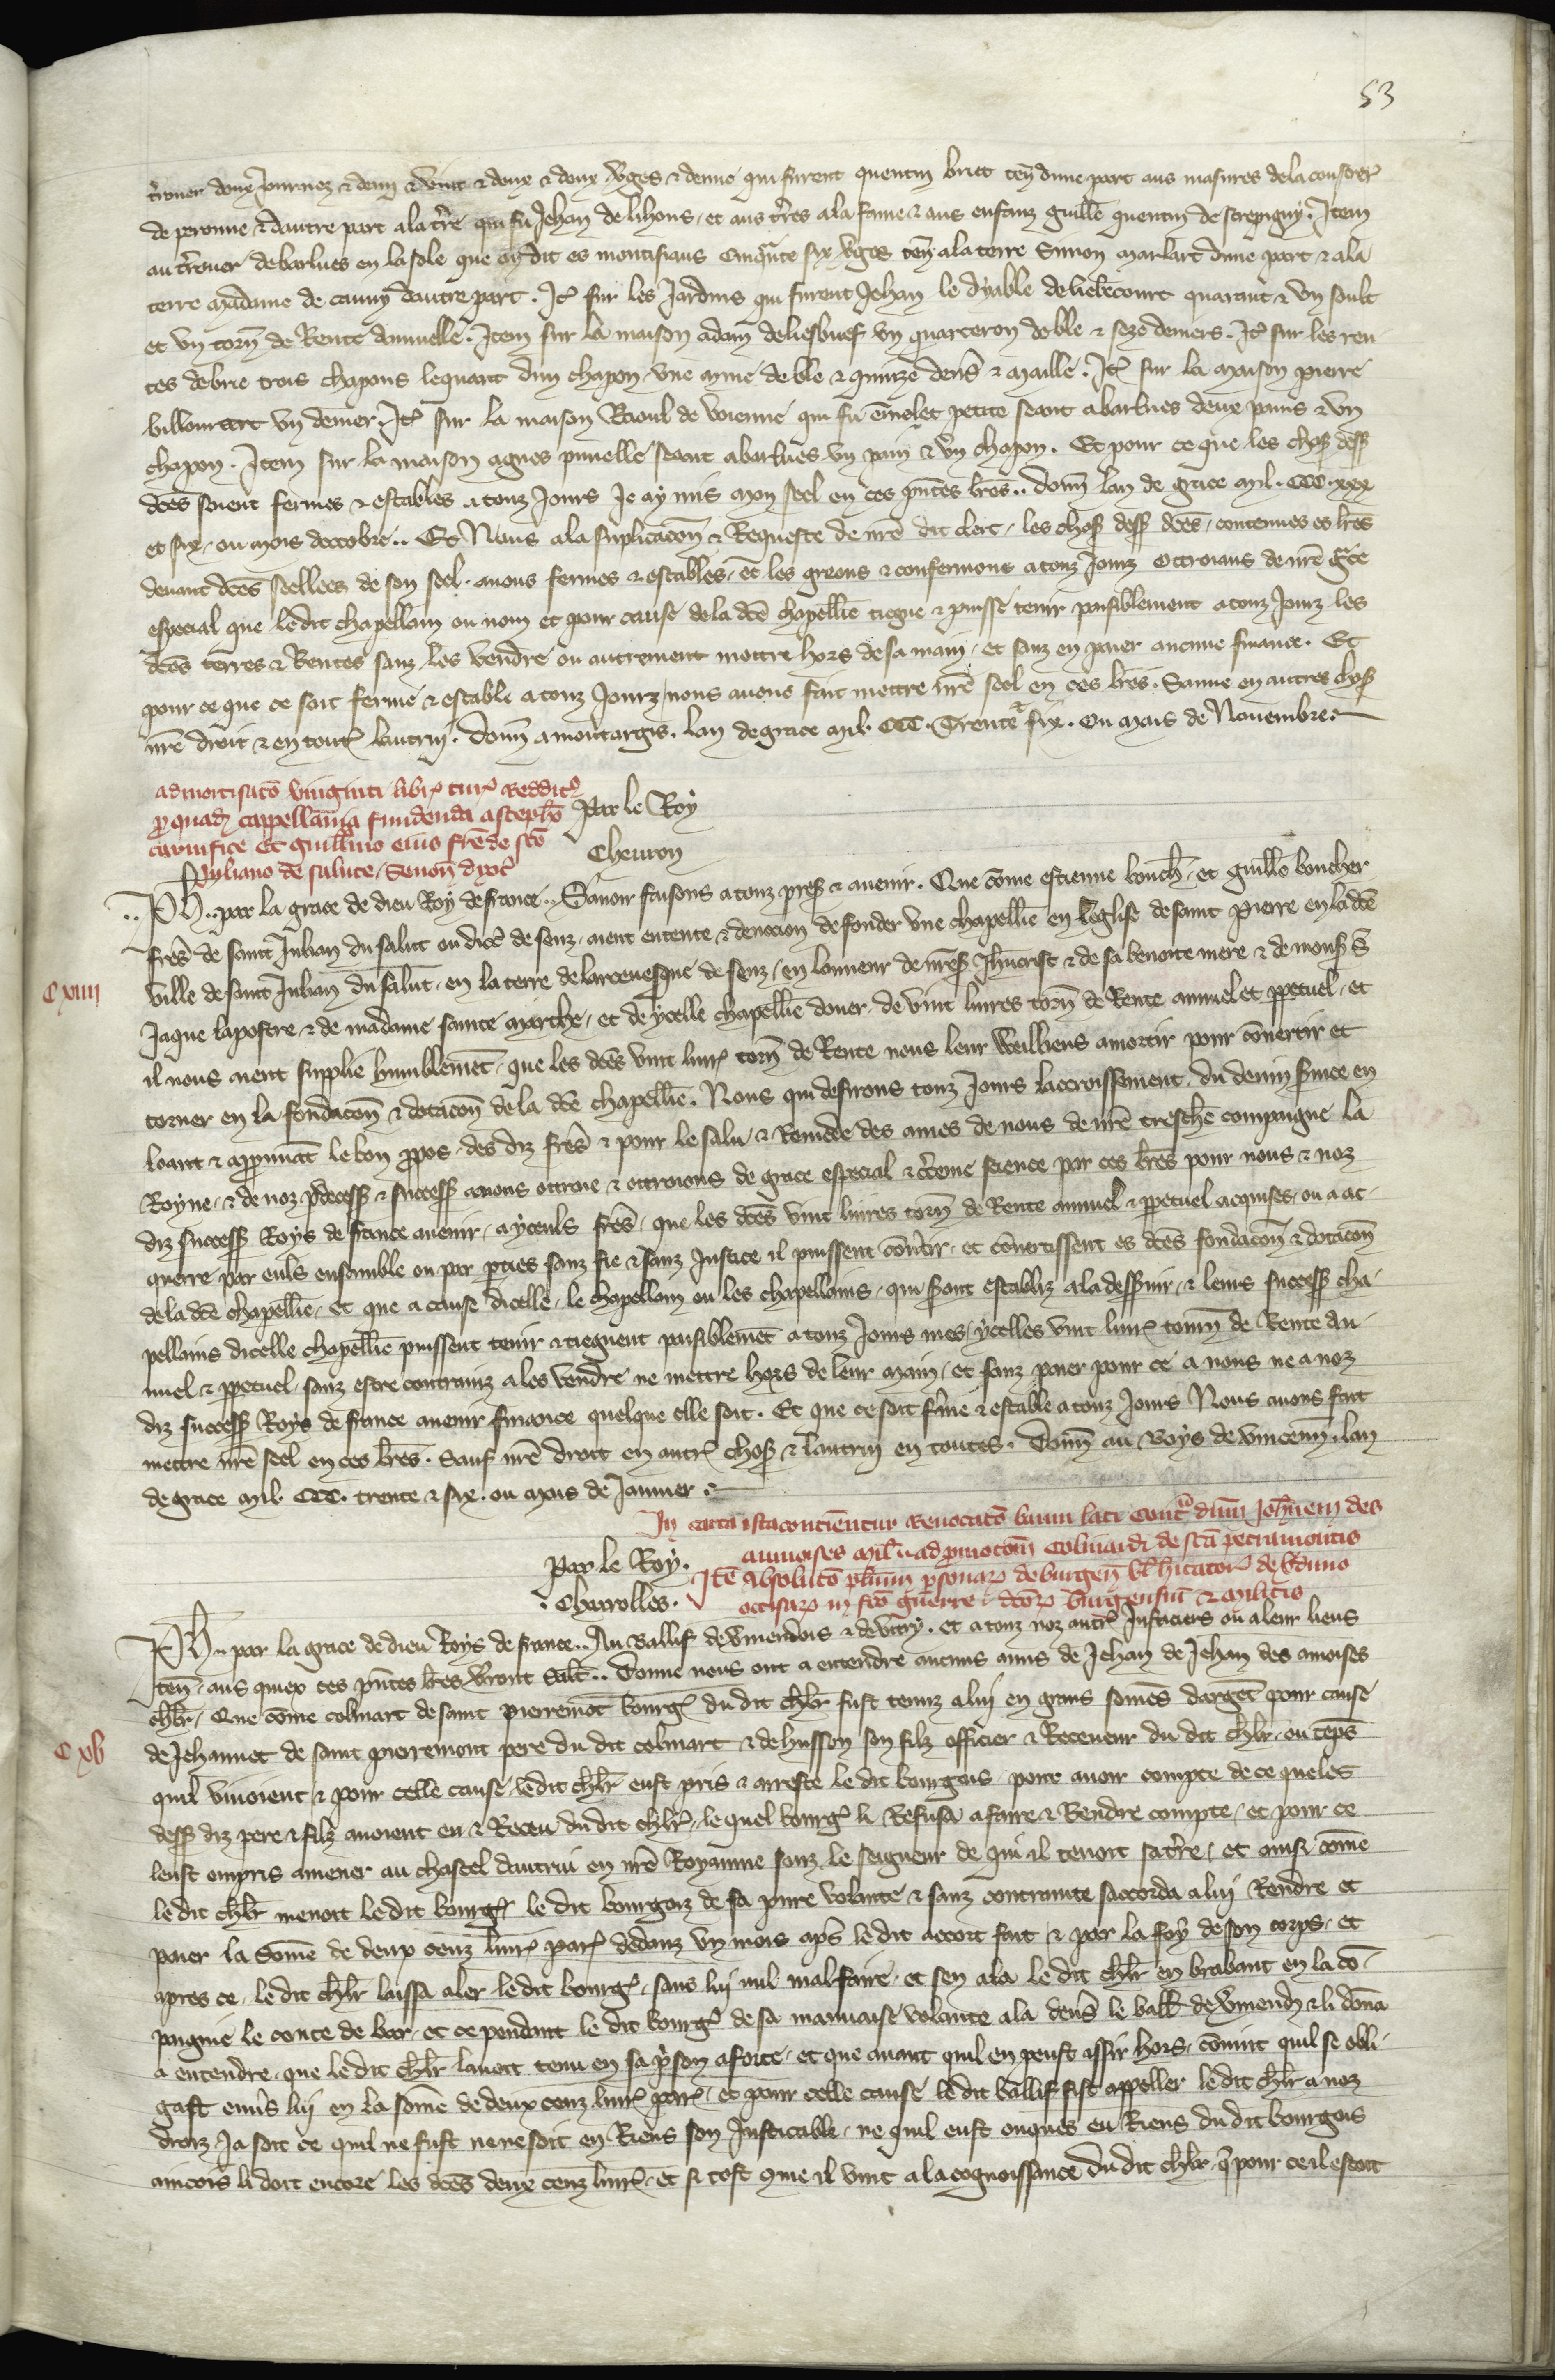 53
terouer deux journez & demi & vint & deux & deux vges & demie qui furent quentin briet ten dune part aus masures de la
de peronne & dautre part a la tre qui fu Jehan de lihons et aus tres a la fame & aus enfanz guille quentin de . Item
au terouer de barlues en la sole que en dit es cinqnte six vges ten a la terre Simon dune part & a la
terre madame de cauny dautre part . It sur les Jardins qui furent Jehan le dyable de quarante & vn soult
et vn torn de Rente annuelle . Item sur la maison adam de vn quarteron de ble & seze deniers . It sur les ren
tes de brie trois chapons le quart dun chapon vne mine de ble & quinze dens & maille . It sur la maison pierre
vn denier . It sur la maison Raoul de voienne qui fu petite seant a barlues deux pains & vn
chapon . Item sur la maison agnes seant a barlues vn pain & vn chapon . Et pour ce que les chos dess
dces soient fermes & estables a touz Jours Je ay mis mon seel en ces pntes lres .. donn lan de grace mil . CCC . xxx
et six . ou mois doctobre .. Et Nous a la suplicacon & Requeste de nre dit clerc . les chos dess dces . contenues es lres
deuant dces seellees de son seel . auons fermes & estables . et les greons & confermons a touz Jourz Ottroians de nre gce
especial que le dit chapellain ou nom et pour cause de la dce chapellie tiegne & puisse tenir paisiblement a touz Jourz les
dces terres & Rentes sanz les vendre ou autrement mettre hors de sa main . et sanz en paier aucune finance . Et
pour ce que ce soit ferme & estable a touz Jourz nous auons fait mettre nre seel en ces lres . Sauue en autres chos
nre droit & en tout lautrui . donn a montargis . lan de grace mil . CCC . Trente & six . Ou mois de Nouembre .
admortisaco vinginti libr tur reddit
p quad cappellania fundenda a stepho
carnifice Et guillmo eius fre de sco
Juliano de saluce Senon dyoc
Par le Roy
Cheuron
.. Ph .. par la grace de dieu Roy de france .. Sauoir faisons a touz pres & auenir . Que come estienne bouch . et guille boucher
fres de saint Julian du salut ou dioc de senz . aient entente & deuocion de fonder vne chapellie en leglise de saint pierre en la dce
Cxiiii
ville de saint Julian du salut . en la terre de larceuesque de senz . en lonneur de nres Jhucrist & de sa benoite mere & de mons s
Jaque lapostre & de madame sainte marthe . et de ycelle chapellie doner de vint liures torn de Rente annuel et ppetuel . et
il nous aient supplie humblemet . que les dces vint liur torn de Rente nous leur veillens amortir pour conuertir et
torner en la fondacon & dotacon de la dce chapellie . Nous qui desirons touz Jours lacroissement du deuin seruice en
loant & appruuat le bon ppos des diz fres & pour le salu & Remede des ames de nous de nre treschre compaigne la
Royne . & de noz pdecess & success auons ottroie & ottroions de grace especial & ctaine science par ces lres pour nous & noz
diz success Roys de france auenir . a yceuls fres . que les dces vint liures torn de Rente annuel & ppetuel acquises . ou a ac
querre par euls ensamble ou par pties sanz fie & sanz Justice il puissent contir . et conuertissent es dces fondacon & dotacon
de la dce chapellie . et que a cause dicelle . le chapellain ou les chapellains . qui seront establiz a la desseruir . & leurs success cha
pellains dicelle chapellie puissent tenir & tiegnent paisiblemet a touz Jours mes ycelles vint liur tourn de Rente an
nuel & ppetuel . sanz estre contrainz a les vendre ne mettre hors de leur main . et sanz paier pour ce a nous ne a noz
diz success Roys de france auenir finance quelque elle soit . Et que ce soit fme & estable a touz Jours Nous auons fait
mettre nre seel en ces lres . Sauf nre droit en autr chos & lautrui en toutes . Donn au Boys de vincenn . lan
de grace mil . CCC . trente & six . ou mois de Januier .
In carta ista contientur Reuocato banni lati cont dnm Johem des
annoises ad pmocom colinardi de sca petrimontis
Ite Absoluco pson de
occisar in fco guerre dcor burgensiu &
Par le Roy .
. Charrolles .
Ph .. par la grace de dieu Roys de france .. Au Baillif de vmendois & de vitry . et a touz noz autr Justiciers ou a leur lieus
ten . aus quiex ces pntes lres vront Salt .. Donne nous ont a entendre aucuns amis de Jehan de Jehan des amoises
chlr . Que come colinart de saint pierremot bourg du dit chlr fust tenuz a lui en grans somes dargent pour cause
Cxv
de Jehannet de saint pierremont pere du dit colinart & de husson son filz officier & Receueur du dit chlr . ou teps
quil viuoient & pour celle cause . le dit chlr eust pris & arreste le dit bourgois porce auoir compte de ce que les
dess diz pere & filz auoient eu & Receu du dit chlr . le quel bourg li Refusa a faire & Rendre compte . et pour ce
leust empris amener au chastel dautrui en nre Royaume souz le seigneur de qui il tenoit sa tre . et ainsi come
le dit chlr menoit le dit bourg le dit bourgoiz de sa pure volante & sanz contrainte saccorda a lui Rendre et
paier la Some de deux cenz liur par dedanz vn mois aps le dit accort fait & par la foy de son corps . et
apres ce . le dit chlr laissa aler le dit bourg . sans lui nul mal faire . et sen ala le dit chlr en brabant en la co
paignie le conte de bar . et ce pendant le dit bourg de sa mauuaise volante ala deus le ball de vmend & li dona
a entendre . que le dit chlr lauoit tenu en sa pson a force . et que auant quil en peust issir hors . conuint quil se obli
gast enuis lui en la some de deux cenz liur par . et pour celle cause le dit baillif fist appeller le dit chlr a noz
droiz Ja soit ce quil ne fust ne ne soit en Riens son Justicable . ne quil eust onques eu Riens du dit bourgois
aincois li doit encore les dces deux cenz liur . et si tost que il vint a la cognoissance du dit chlr q pour ce il estoit